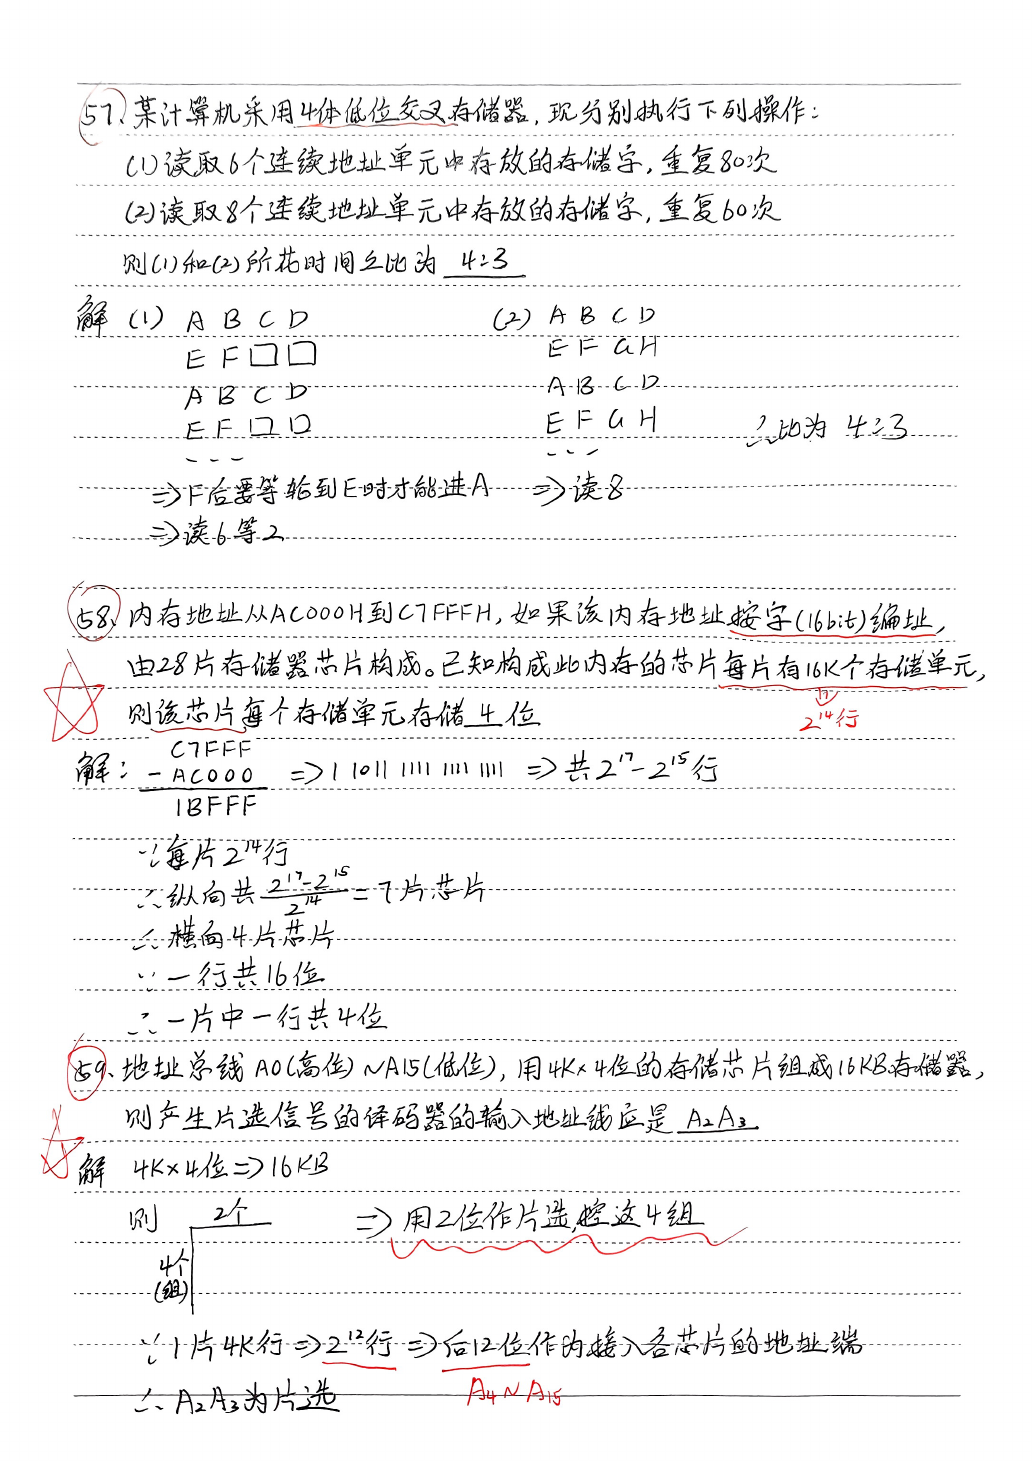 57、某计算机采用4体低位交叉存储器,现分别执行下列操作:
(1)读取6个连续地址单元中存放的存储字,重复80次
(2)读取8个连续地址单元中存放的存储字,重复60次
则(1)和(2)所花时间之比为 4:3
解 (1) A B C D (2) A B C D
E F □ □ E F G H
A B C D A B C D
E F □ □ E F G H ∴比为 4:3
... ...
⇒F后要等轮到E时才能进A ⇒读8
⇒读6等2
58、内存地址从AC000H到C7FFFH,如果该内存地址按字(16bit)编址,
由28片存储器芯片构成。已知构成此内存的芯片每片有16K个存储单元,
则该芯片每个存储单元存储 4 位
⇓
2¹⁴行
解: C7FFF
- AC000 ⇒1 1011 1111 1111 1111 ⇒共2¹⁷-2¹⁵行
1BFFF
∵每片2¹⁴行
∴纵向共 (2¹⁷-2¹⁵)/2¹⁴ = 7片芯片
∴横向4片芯片
∵一行共16位
∴一片中一行共4位
59、地址总线A0(高位)~A15(低位),用4K×4位的存储芯片组成16KB存储器,
则产生片选信号的译码器的输入地址线应是 A₂A₃
解 4K×4位⇒16KB
则 2个 ⇒用2位作片选,控这4组
4个
(组)
∵1片4K行⇒2¹²行⇒后12位作为接入各芯片的地址端
A₄~A₁₅
∴A₂A₃为片选